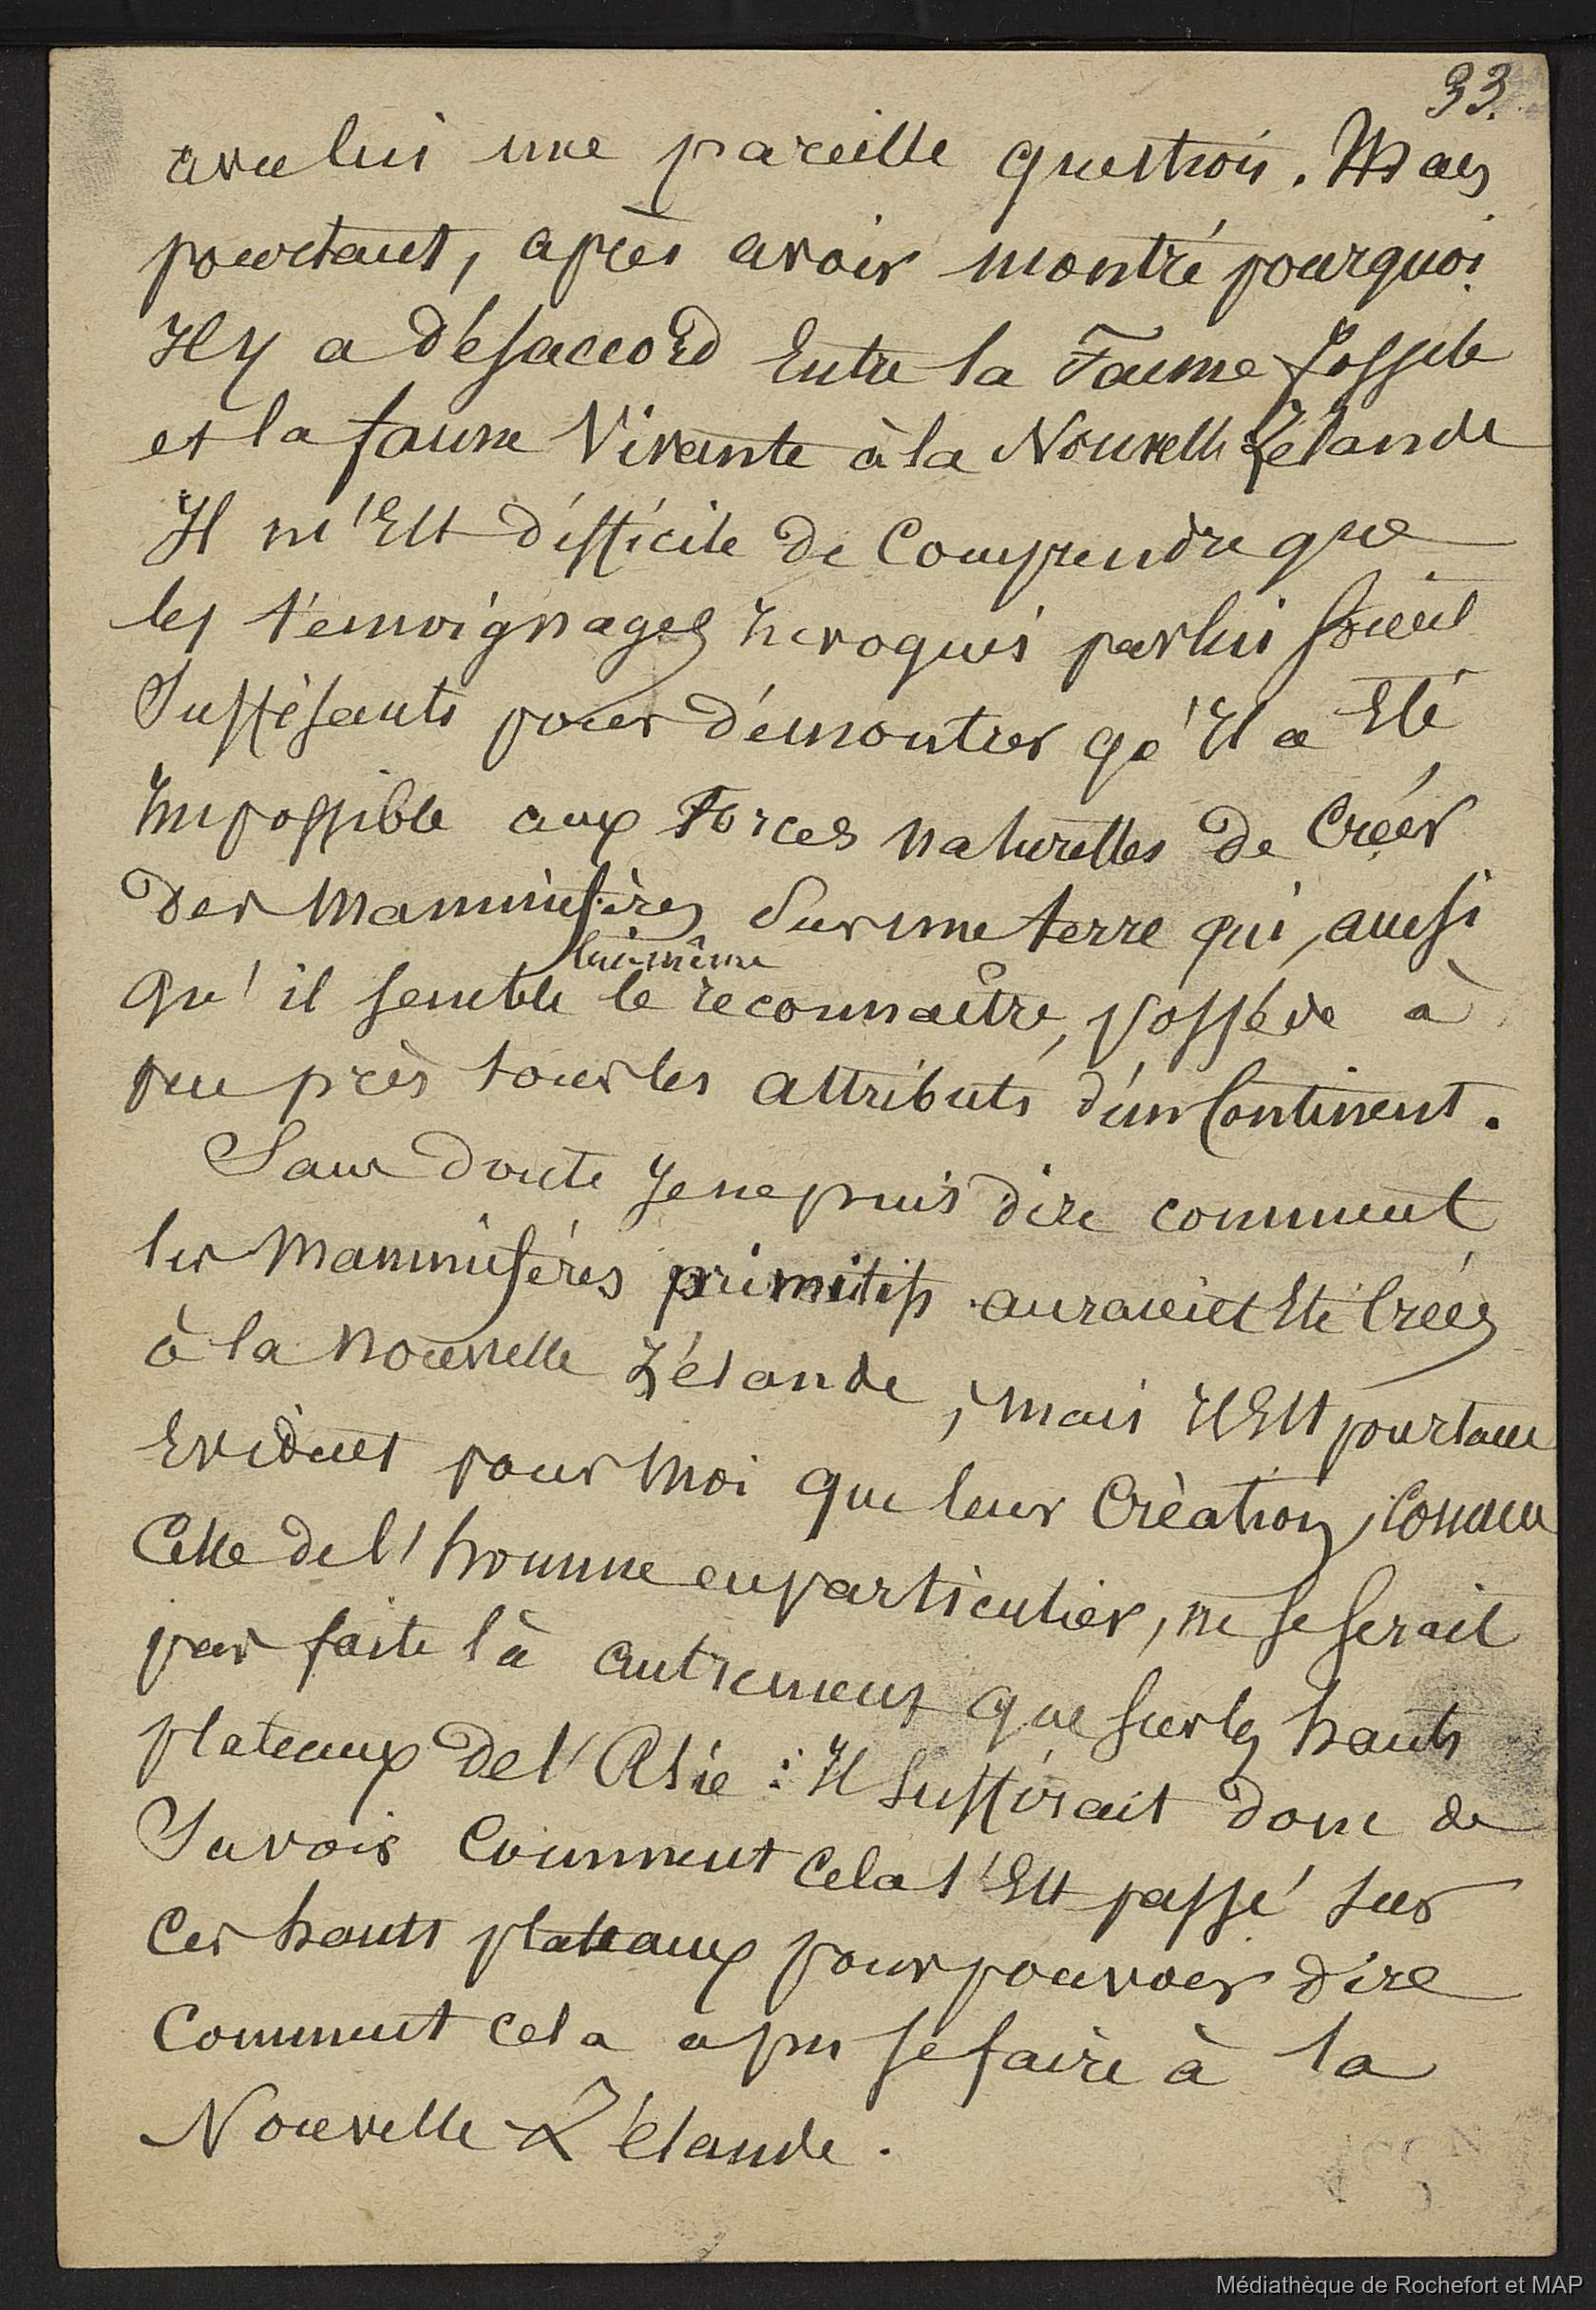 33.
avec lui une pareille question. Mais
pourtant, après avoir montré pourquoi
Il y a désaccord Entre la Faune fossile
et la faune Vivante à la Nouvelle Zélande
Il m'Est difficile de Comprendre que
les témoignages Invoqués par lui soient
Suffisants pour démontrer qu'Il a Eté
Impossible aux Forces naturelles de Créer
des Mammifères Sur une terre qui, aussi
lui-même
qu'il semble le reconnaître, possède à
peu près tous les attributs d'un Continent.
Sans doute Je ne puis dire comment
les Mammifères primitifs auraient Eté Créés
à la Nouvelle Zélande, mais Il Est pourtant
Evident pour Moi que leur Création, Comme
Celle de l'homme en particulier, ne se serait
pas faite là autrement que sur les hauts
plateaux de l'Asie : Il Suffirait donc de
Savoir Comment Cela s'Est passé sur
Ces hauts plateaux pour pouvoir dire
Comment cela a pu se faire à la
Nouvelle Zélande.
Médiathèque de Rochefort et MAP